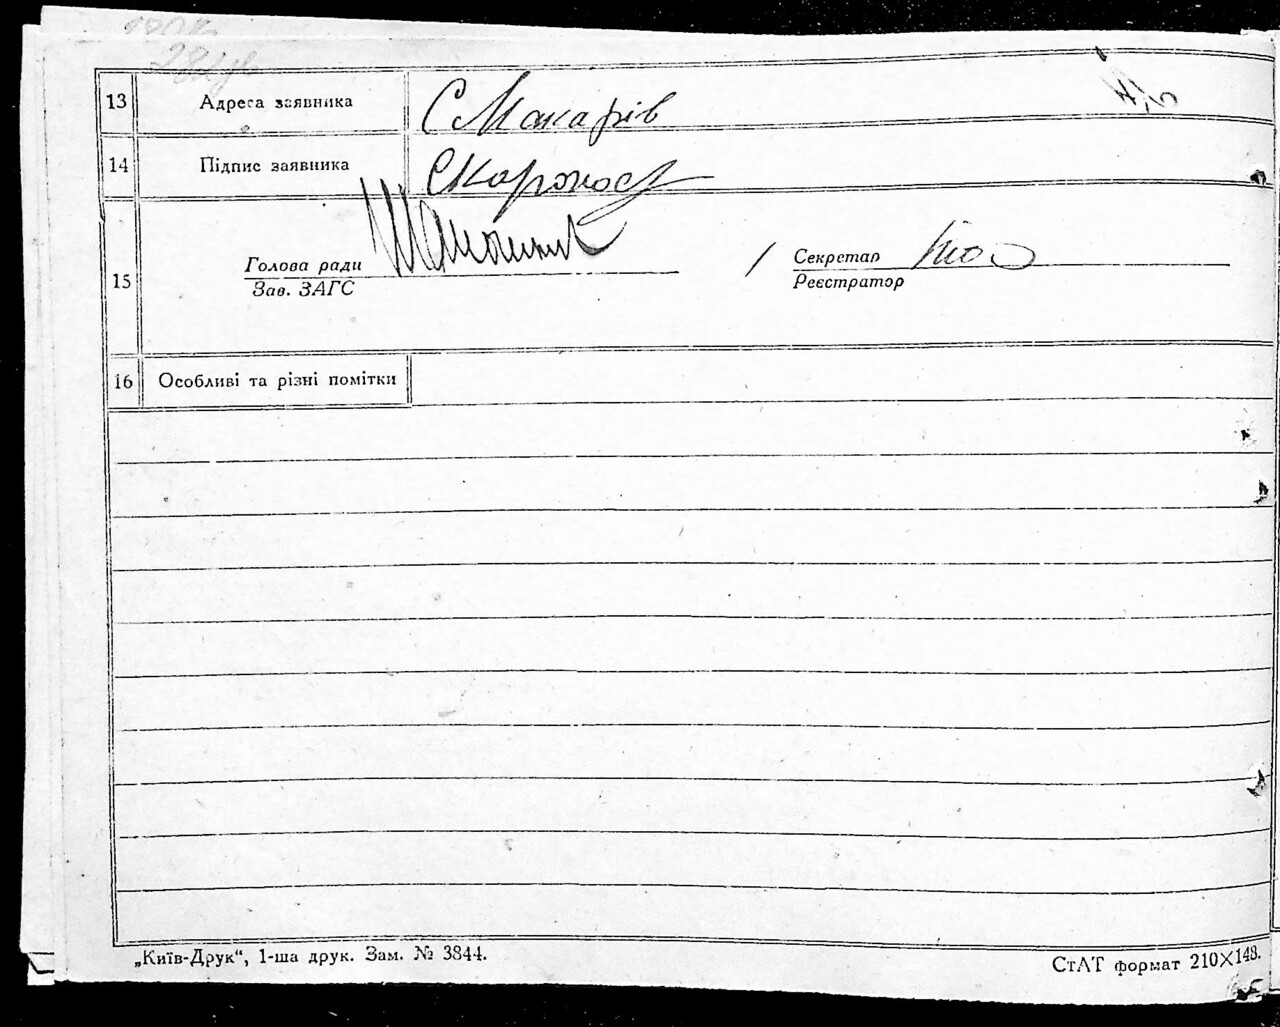 13 Адреса заявника С Макарів
14 Підпис заявника
15 Голова ради
Зав. ЗАГС
Секретар
Реєстратор
16 Особливі та різні помітки
„Київ-Друк“, 1-ша друк. Зам. № 3844.
СтАТ формат 210×148.